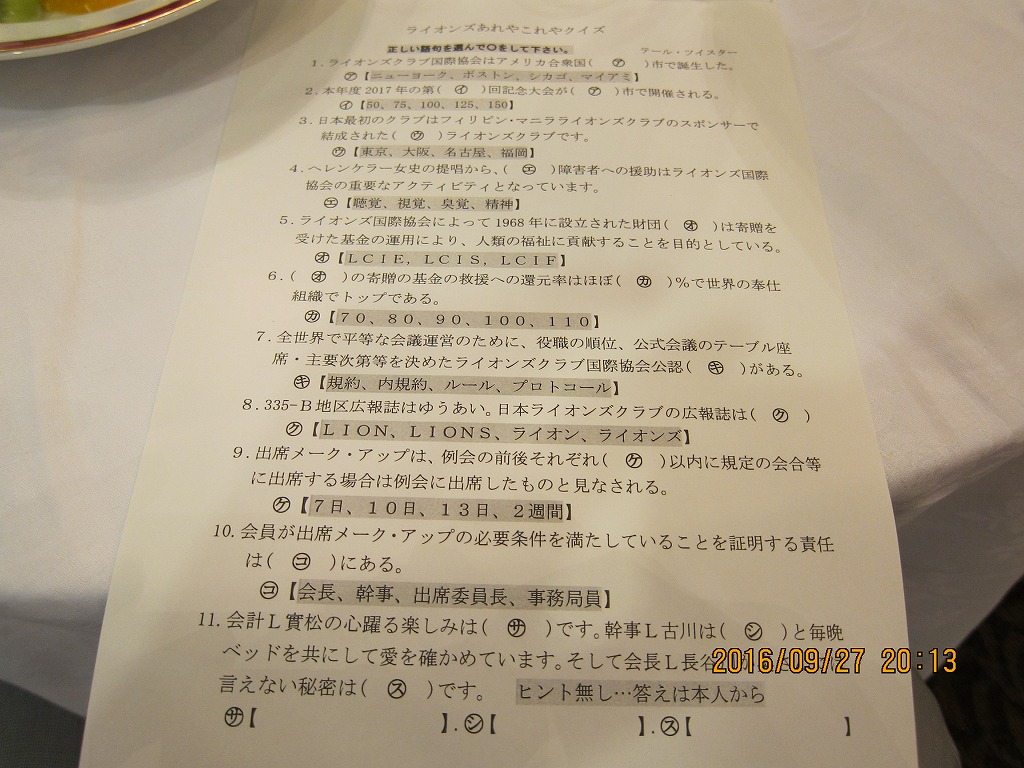 ライオンズあれやこれやクイズ
正しい語句を選んで〇をして下さい。 テール・ツイスター
1. ライオンズクラブ国際協会はアメリカ合衆国( ㋐ )市で誕生した。
㋐【ニューヨーク、ボストン、シカゴ、マイアミ】
2. 本年度2017年の第( ㋑ )回記念大会が( ㋐ )市で開催される。
㋑【50、75、100、125、150】
3. 日本最初のクラブはフィリピン・マニラライオンズクラブのスポンサーで
結成された( ㋒ )ライオンズクラブです。
㋒【東京、大阪、名古屋、福岡】
4. ヘレンケラー女史の提唱から、( ㋓ )障害者への援助はライオンズ国際
協会の重要なアクティビティとなっています。
㋓【聴覚、視覚、臭覚、精神】
5. ライオンズ国際協会によって1968年に設立された財団( ㋔ )は寄贈を
受けた基金の運用により、人類の福祉に貢献することを目的としている。
㋔【ＬＣＩＥ，ＬＣＩＳ，ＬＣＩＦ】
6. ( ㋔ )の寄贈の基金の救援への還元率はほぼ( ㋕ )％で世界の奉仕
組織でトップである。
㋕【７０、８０、９０、１００、１１０】
7. 全世界で平等な会議運営のために、役職の順位、公式会議のテーブル座
席・主要次第等を決めたライオンズクラブ国際協会公認( ㋖ )がある。
㋖【規約、内規約、ルール、プロトコール】
8. 335-Ｂ地区広報誌はゆうあい。日本ライオンズクラブの広報誌は( ㋗ )
㋗【ＬＩＯＮ、ＬＩＯＮＳ、ライオン、ライオンズ】
9. 出席メーク・アップは、例会の前後それぞれ( ㋘ )以内に規定の会合等
に出席する場合は例会に出席したものと見なされる。
㋘【７日、１０日、１３日、２週間】
10. 会員が出席メーク・アップの必要条件を満たしていることを証明する責任
は( ㋙ )にある。
㋙【会長、幹事、出席委員長、事務局員】
11. 会計Ｌ實松の心躍る楽しみは( ㋚ )です。幹事Ｌ古川は( ㋛ )と毎晩
ベッドを共にして愛を確かめています。そして会長Ｌ長谷
言えない秘密は( ㋜ )です。 ヒント無し…答えは本人から
㋚【 】.㋛【 】.㋜【 】
2016/09/27 20:13